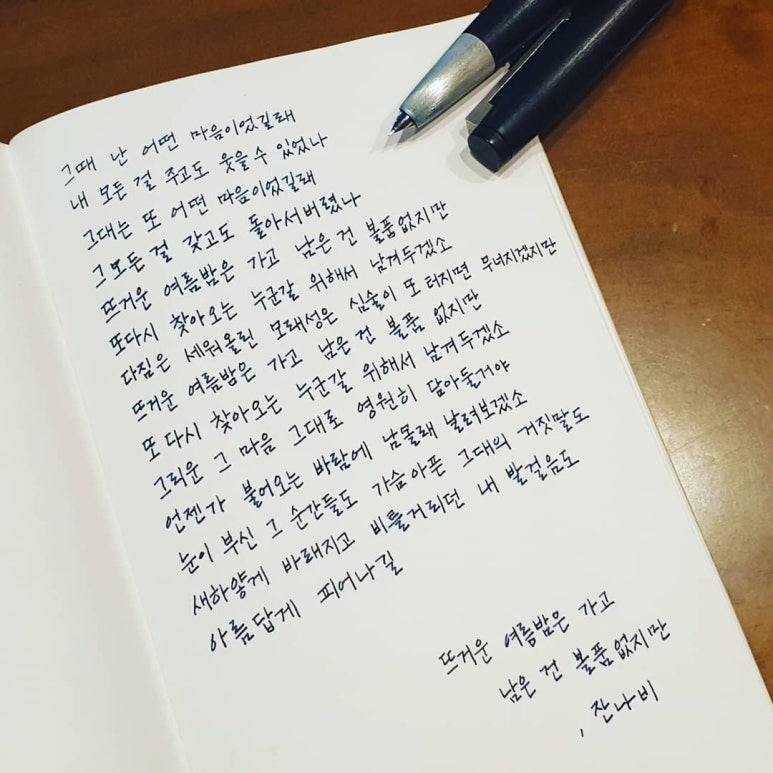 그때 난 어떤 마음이었길래
내 모든 걸 주고도 웃을 수 있었나
그대는 또 어떤 마음이었길래
그 모든 걸 갖고도 돌아서버렸나
뜨거운 여름밤은 가고 남은 건 볼품없지만
또다시 찾아오는 누군갈 위해서 남겨두겠소
다짐은 세워올린 모래성은 심술이 또 터지면 무너지겠지만
뜨거운 여름밤은 가고 남은 건 볼품 없지만
또 다시 찾아오는 누군갈 위해서 남겨두겠소
그리운 그 마음 그대로 영원히 담아둘거야
언젠가 불어오는 바람에 남몰래 날려보겠소
눈이 부신 그 순간들도 가슴아픈 그대의 거짓말도
새하얗게 바래지고 비틀거리던 내 발걸음도
아름답게 피어나길
뜨거운 여름밤은 가고
남은 건 볼품없지만
, 잔나비